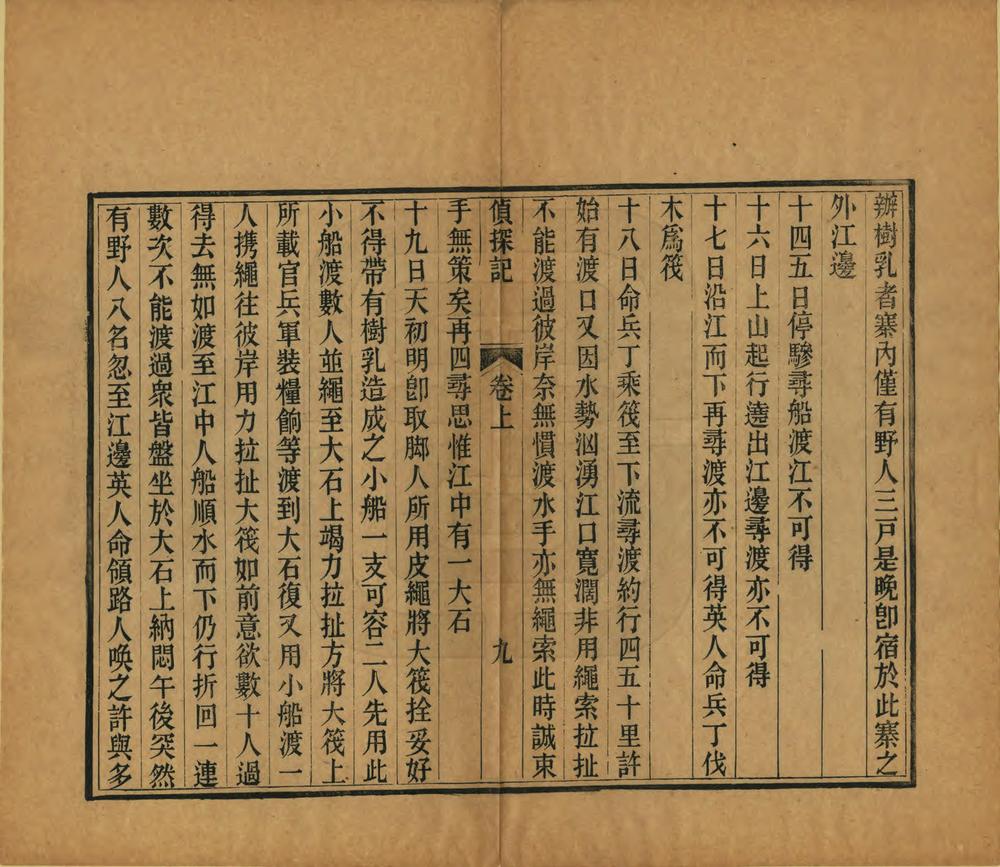 辦樹乳者寨內僅有野人三戸是晚卽宿於此寨之
外江邊
十四五日停驂尋船渡江不可得
十六日上山起行遶出江邊尋渡亦不可得
十七日沿江而下再尋渡亦不可得英人命兵丁伐
木爲筏
十八日命兵丁乘筏至下流尋渡約行四五十里許
始有渡口又因水勢汹湧江口寬濶非用繩索拉扯
不能渡過彼岸奈無慣渡水手亦無繩索此時誠束
偵探記 卷上 九
手無策矣再四尋思惟江中有一大石
十九日天初明卽取脚人所用皮繩將大筏拴妥好
不得帶有樹乳造成之小船一支可容二人先用此
小船渡數人並繩至大石上竭力拉扯方將大筏上
所載官兵軍裝糧餉等渡到大石復又用小船渡一
人携繩往彼岸用力拉扯大筏如前意欲數十人過
得去無如渡至江中人船順水而下仍行折回一連
數次不能渡過衆皆盤坐於大石上納悶午後突然
有野人八名忽至江邊英人命領路人喚之許與多